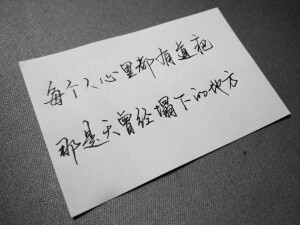 每个人心里都有道疤
那是天曾经塌下的地方